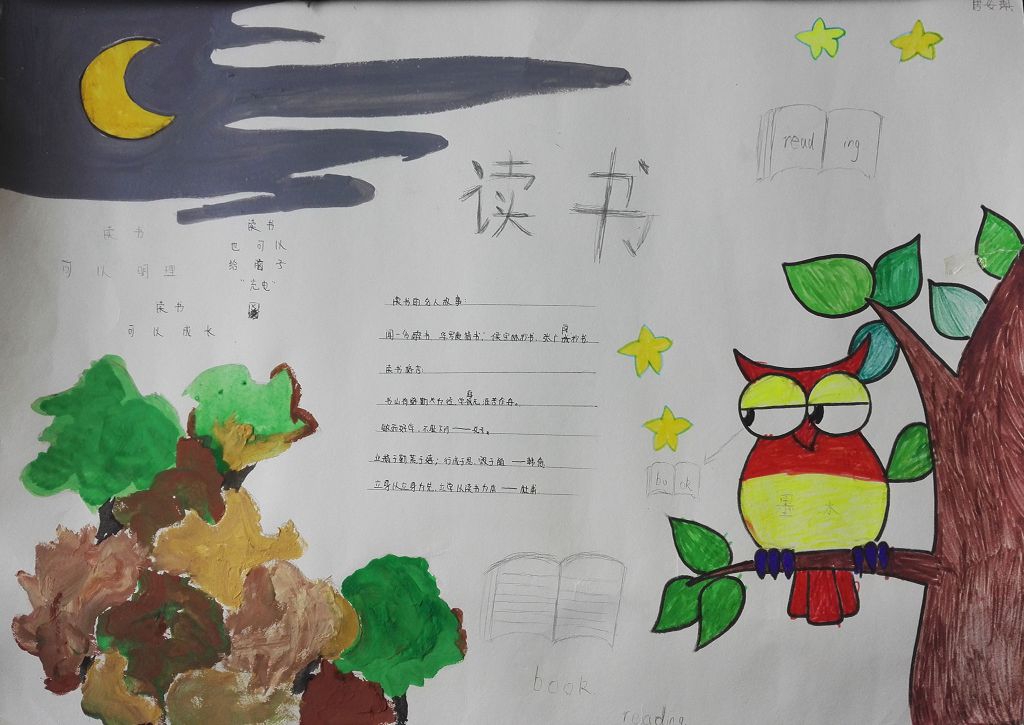 读书
read ing
读书
可以明理
读书
可以成长
读书
也可以
给脑子
"充电"
读书的名人故事:
闻一多醉书
读书格言:
书山有路勤为径,学海无涯苦作舟。
敏而好学,不耻下问——孔子。
业精于勤荒于嬉;行成于思,毁于随——韩愈
立身以立学为先,立学以读书为本——
bo ok
墨水
book
reading